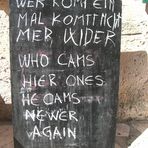 WER KOMT EIN
MAL KOMT NICHT
MER WIDER
WHO CAMS
HIER ONES
HE CAMS
NEWER
AGAIN